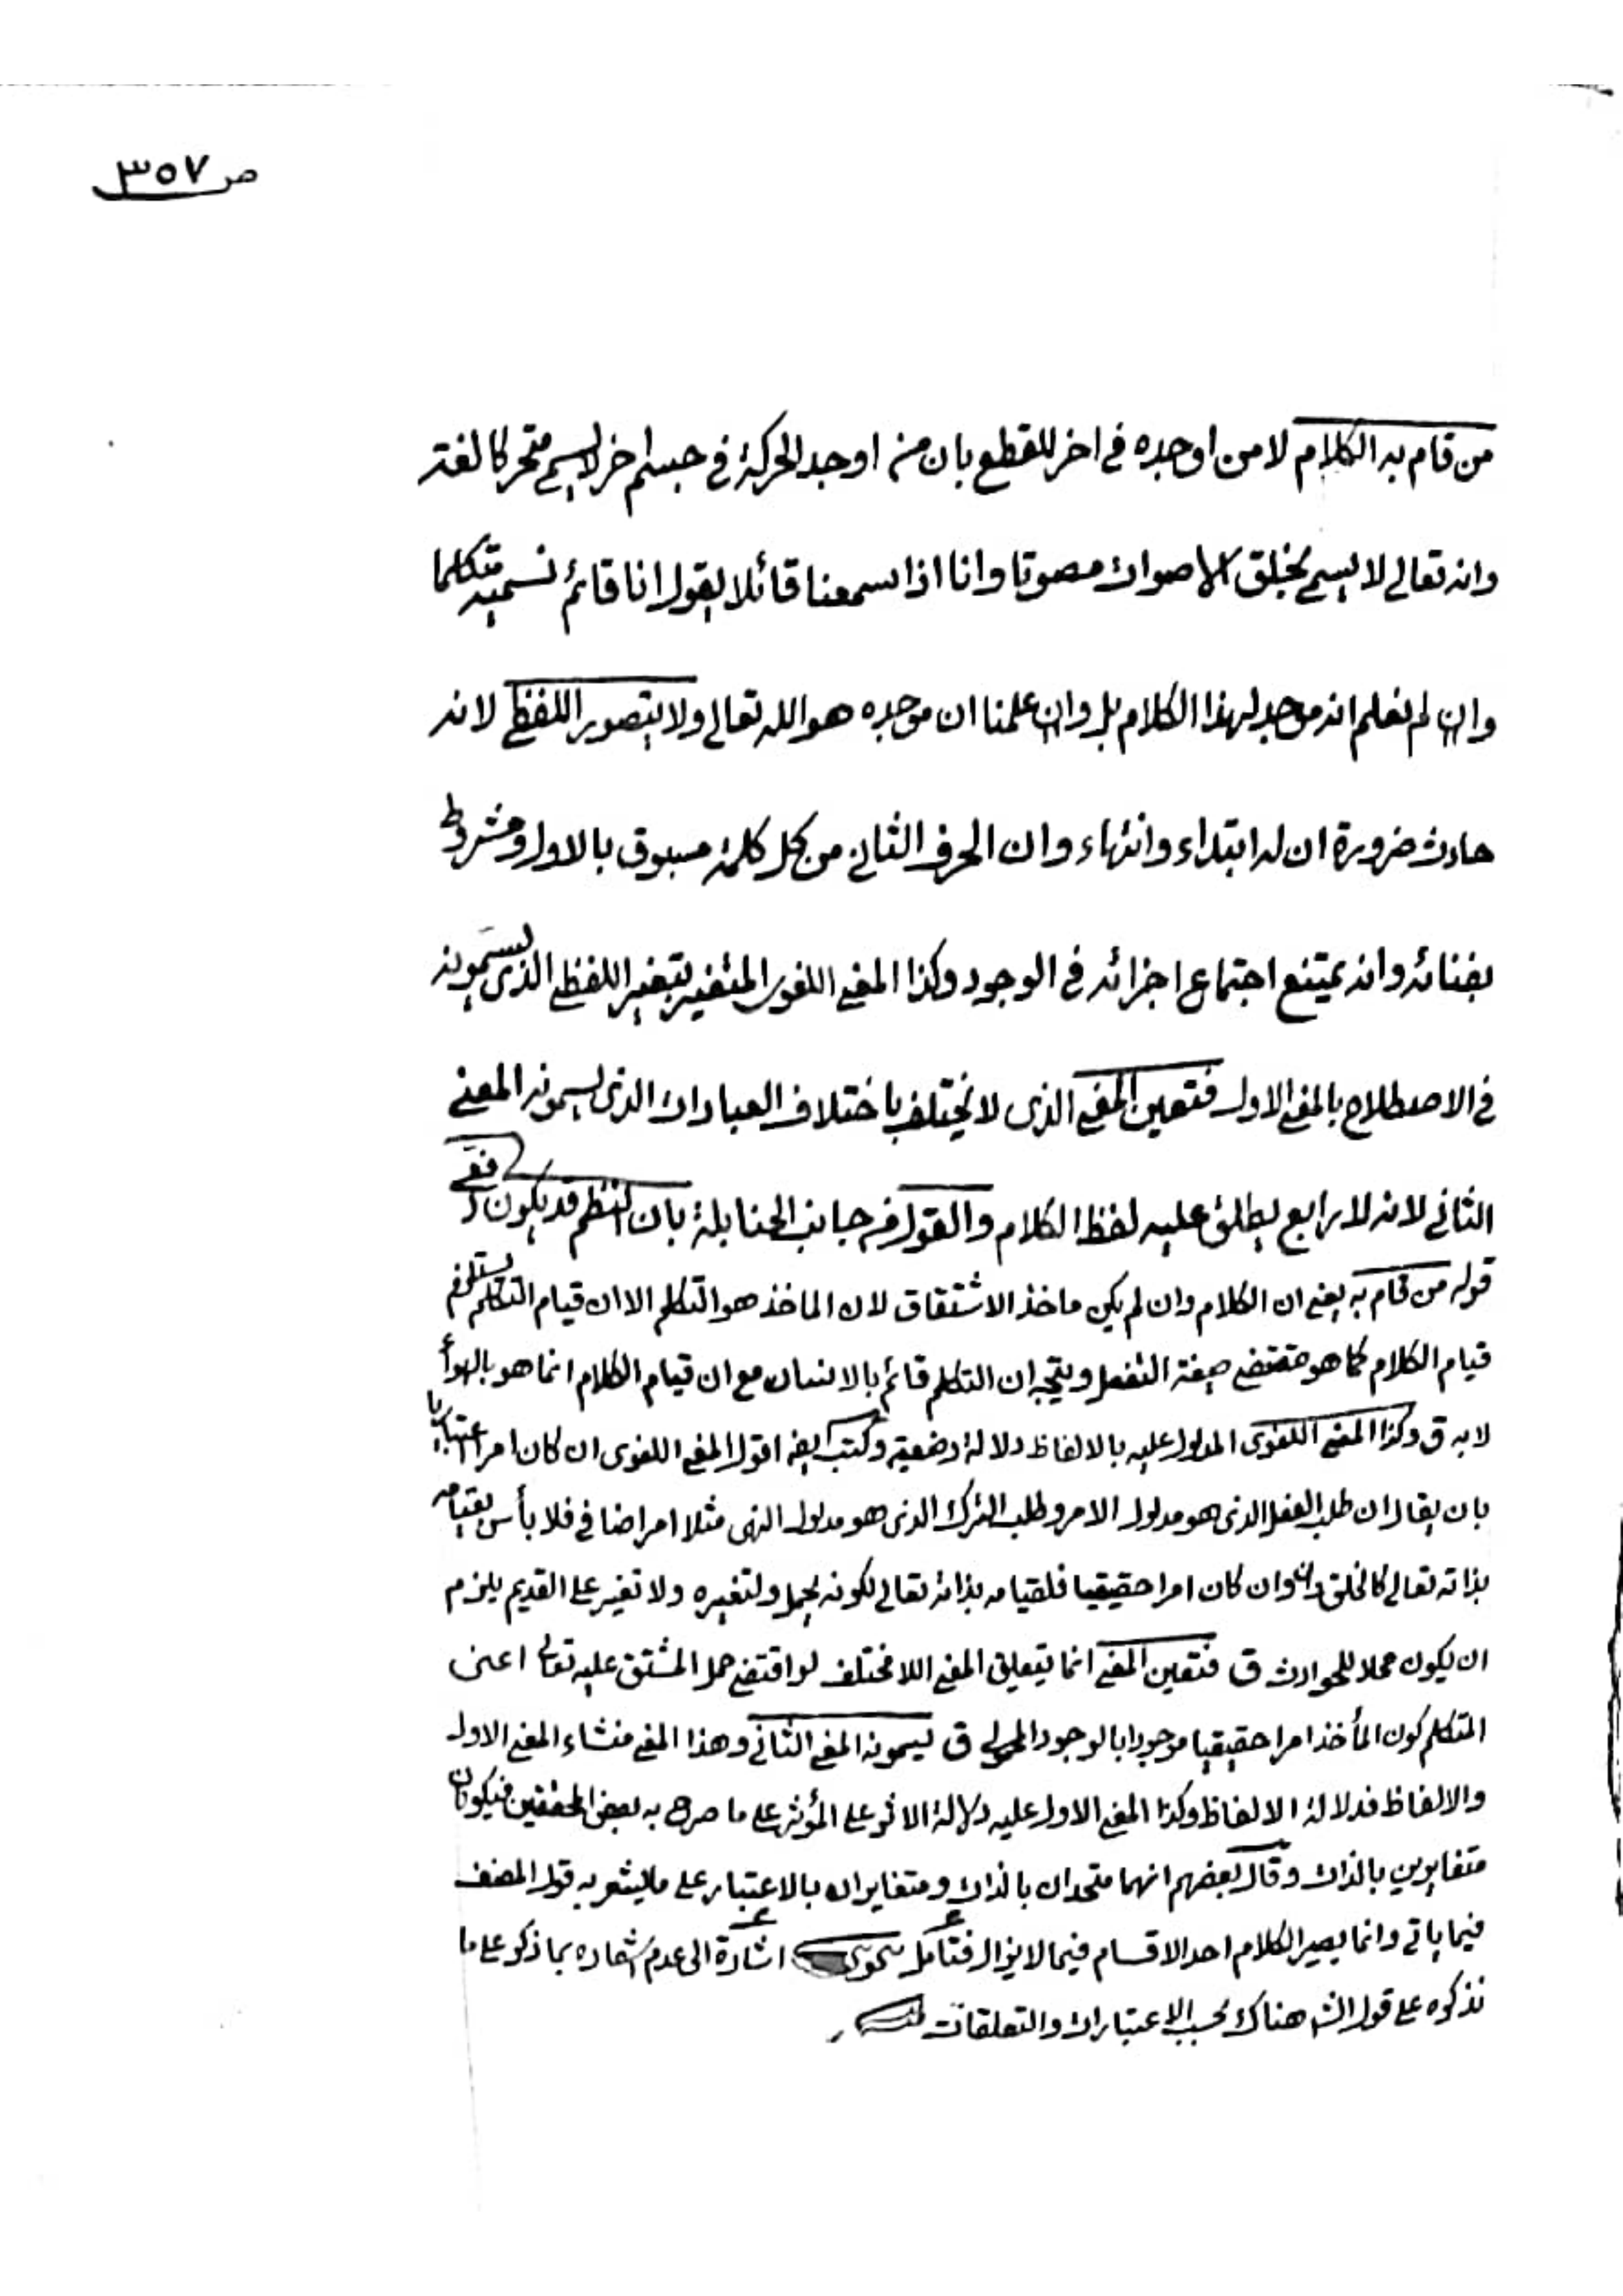 ص ٣٥٧
من قام به الكلام لا من اوجده فى اخر للقطع بان من اوجد الحركة فى جسم اخر لا يسمى متحركا لغة
وانه تعالى لا يسمى بخلق الاصوات مصوتا وانا اذا سمعنا قائلا يقول انا قائم نسميه متكلما
وان لم نعلم انه موجد لهذا الكلام بل وان علمنا ان موجده هو الله تعالى ولا يتصوير اللفظى لانه
حادث ضرورة ان له ابتداء وانتهاء وان الحرف الثانى من كل كلمة مسبوق بالاول ومشروط
بفنائه وانه يمتنع اجتماع اجزائه فى الوجود وكذا المعنى اللغوى المتغير بتغير اللفظى الذى يسمونه
فى الاصطلاح بالمعنى الاول فتعين المعنى الذى لا يختلف باختلاف العبارات الذى يسمونه المعنى
الثانى لانه لا رابع يطلق عليه لفظ الكلام والقول من جانب الحنابلة بان النظم قد يكون
قوله من قام به يعنى ان الكلام وان لم يكن ماخذ الاشتقاق لان الماخذ هو التكلم الا ان قيام التكلم يستلزم
قيام الكلام كما هو مقتضى صيغة التفعل ويتجه ان التكلم قائم بالانسان مع ان قيام الكلام انما هو بالهواء
لا به ق وكذا المعنى اللغوى المدلول عليه بالالفاظ دلالة وضعية وكتب ايضا اقول المعنى اللغوى ان كان امرا اعتباريا
بان يقال ان طلب الفعل الذى هو مدلول الامر وطلب الترك الذى هو مدلول النهى مثلا امر اضافى فلا بأس بقيامه
بذاته تعالى كالخلق وان كان امرا حقيقيا فلقيامه بذاته تعالى لكونه ولتغيره ولا تغير على القديم يلزم
ان يكون محلا للحوادث ق فتعين المعنى انما يتعلق المعنى اللا مختلف لو اقتضى حمل المشتق عليه تعالى اعنى
المتكلم كون المأخذ امرا حقيقيا موجودا بالوجود ق يسمونه المعنى الثانى وهذا المعنى منشاء المعنى الاول
والالفاظ فدلالة الالفاظ وكذا المعنى الاول عليه دلالة الاثر على المؤثر على ما صرح به بعض المحققين فيكونان
متغايرين بالذات وقال بعضهم انهما متحدان بالذات ومتغايران بالاعتبار على ما يشعر به قول المصنف
فيما ياتى وانما يصير الكلام احد الاقسام فيما لا يزال فتامل اشارة الى عدم اشعاره بما ذكر على ما
نذكره على قول الش هناك بحسب الاعتبارات والتعلقات منه